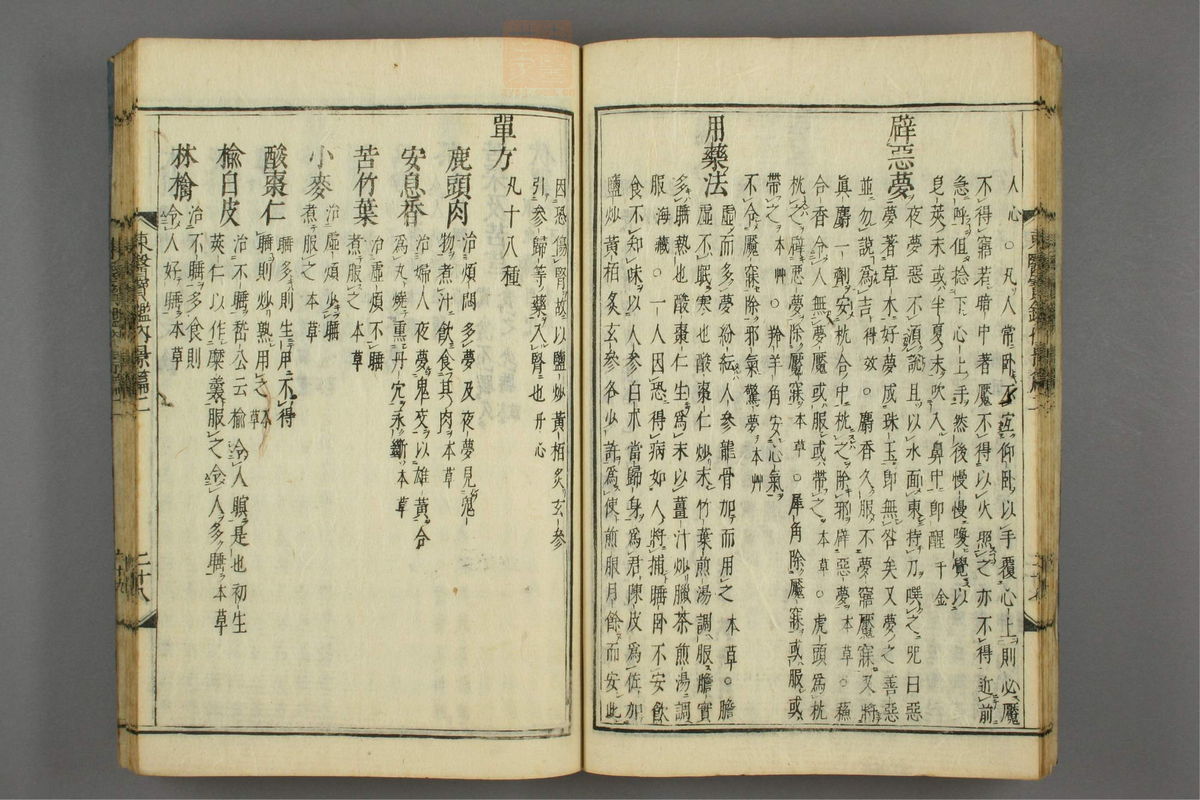 人心○凡人常臥不宜仰臥以手覆心上則必魘
不得寤若暗中著魘不得以火照之亦不得近前
急呼但捻下心上手然後慢慢喚覺以
皂莢末或半夏末吹入鼻中即醒千金
辟惡夢
夜夢惡不須說且以水面東持刀噀之咒曰惡
夢著草木好夢成珠玉即無咎矣又夢之善惡
並勿說為吉得效○麝香久服不夢寤魘寐又將
真麝一劑安枕合中枕之除邪辟惡夢本草○蘇
合香令人無夢魘或服或帶之本草○虎頭為枕
枕之辟惡夢除魘寐本草○犀角除魘寐或服或
帶之本艸○羚羊角安心氣
不令魘寐除邪氣驚夢本艸
用藥法
虛而多夢紛紜人參龍骨加而用之本草○膽
虛不眠寒也酸棗仁炒末竹葉煎湯調服膽實
多睡熱也酸棗仁生為末以薑汁炒臘茶煎湯調
服海藏○一人因恐得病如人將捕睡臥不安飲
食不知味以人參白朮當歸身為君陳皮為佐加
鹽炒黃栢炙玄參各少許為使煎服月餘而安此
因恐傷腎故以鹽炒黃栢炙玄參
引參歸等藥入腎也丹心
單方凡十八種
鹿頭肉
治煩悶多夢及夜夢見鬼
物煮汁飲食其肉本草
安息香
治婦人夜夢鬼交以雄黃合
為丸燒熏丹穴永斷本草
苦竹葉
治虛煩不睡
煮服之本草
小麥
治虛煩少睡
煮服之本草
酸棗仁
睡多則生用不得
睡則炒熟用之本草
楡白皮
治不睡嵇公云楡令人瞑是也初生
莢仁以作糜羹服之令人多睡本草
林檎
治不睡多食則
令人好睡本草
東醫寶鑑內景篇二
二十八